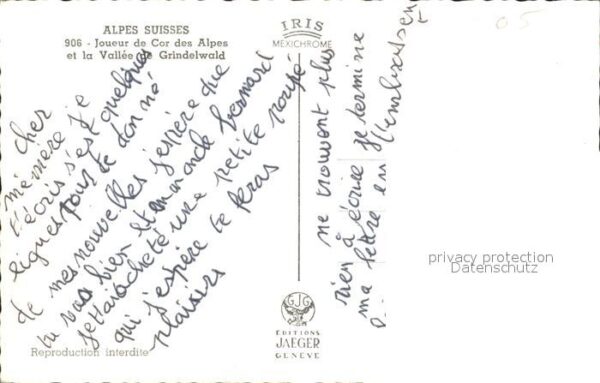 ALPES SUISSES
906 - Joueur de Cor des Alpes
et la Vallée de Grindelwald
IRIS
MEXICHROME
05
cher
mémère je
t'écris s'est quelques
lignes pour te donné
de mes nouvelles j'espère que
tu vas bien et mon oncle bernard
jettarachcheté une petite poupé
qui j'espère te feras
plaisirs
ne trouvant plus
rien à écrire je termine
ma lettre en t'embrassen
privacy protection
Datenschutz
GJG
EDITIONS
JAEGER
GENEVE
Reproduction interdite